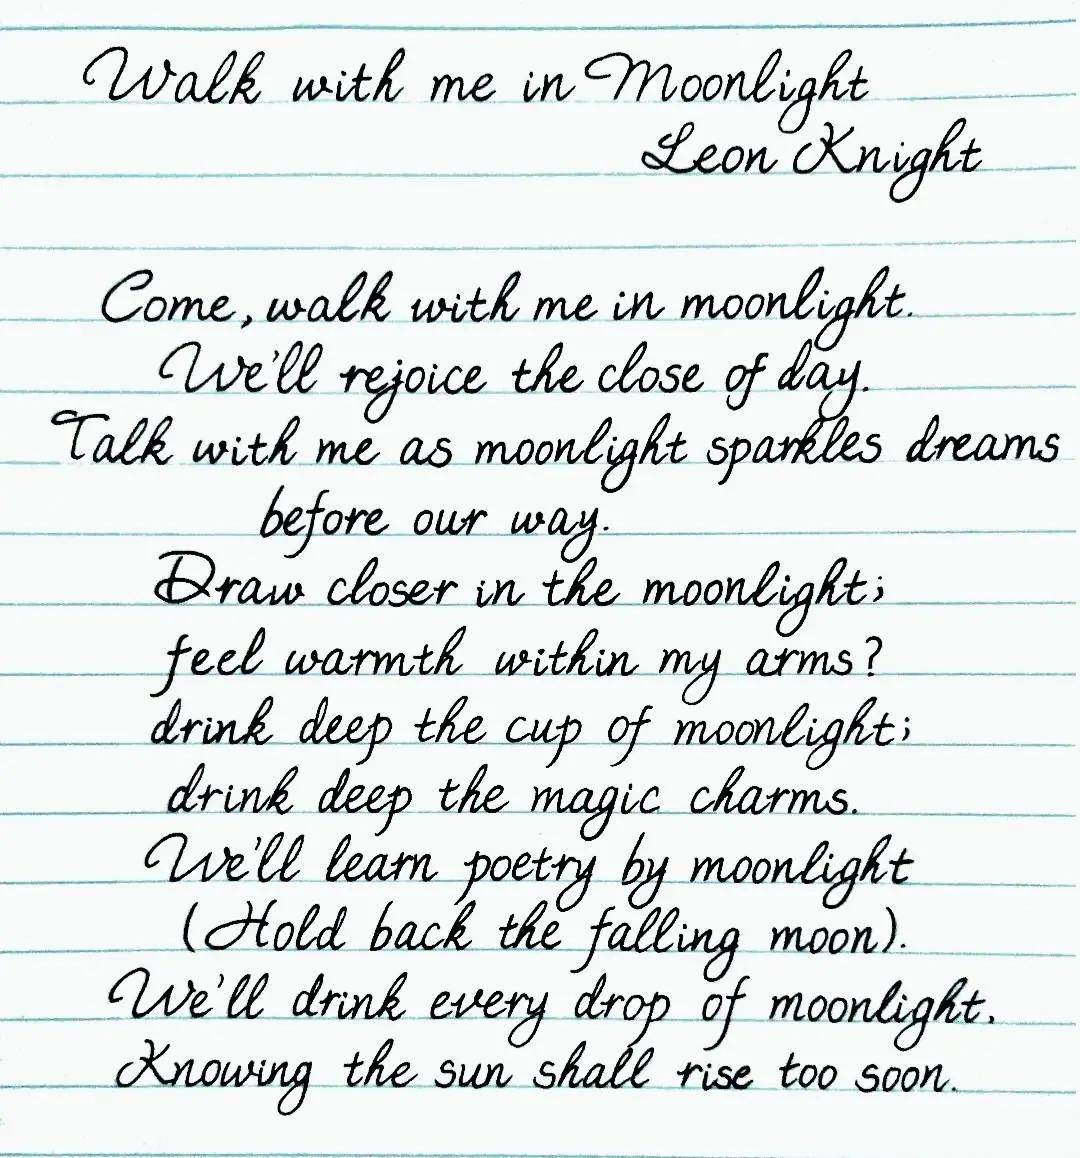 Walk with me in Moonlight
Leon Knight
Come, walk with me in moonlight.
We'll rejoice the close of day.
Talk with me as moonlight sparkles dreams
before our way.
Draw closer in the moonlight;
feel warmth within my arms?
drink deep the cup of moonlight;
drink deep the magic charms.
We'll learn poetry by moonlight
(Hold back the falling moon).
We'll drink every drop of moonlight.
Knowing the sun shall rise too soon.